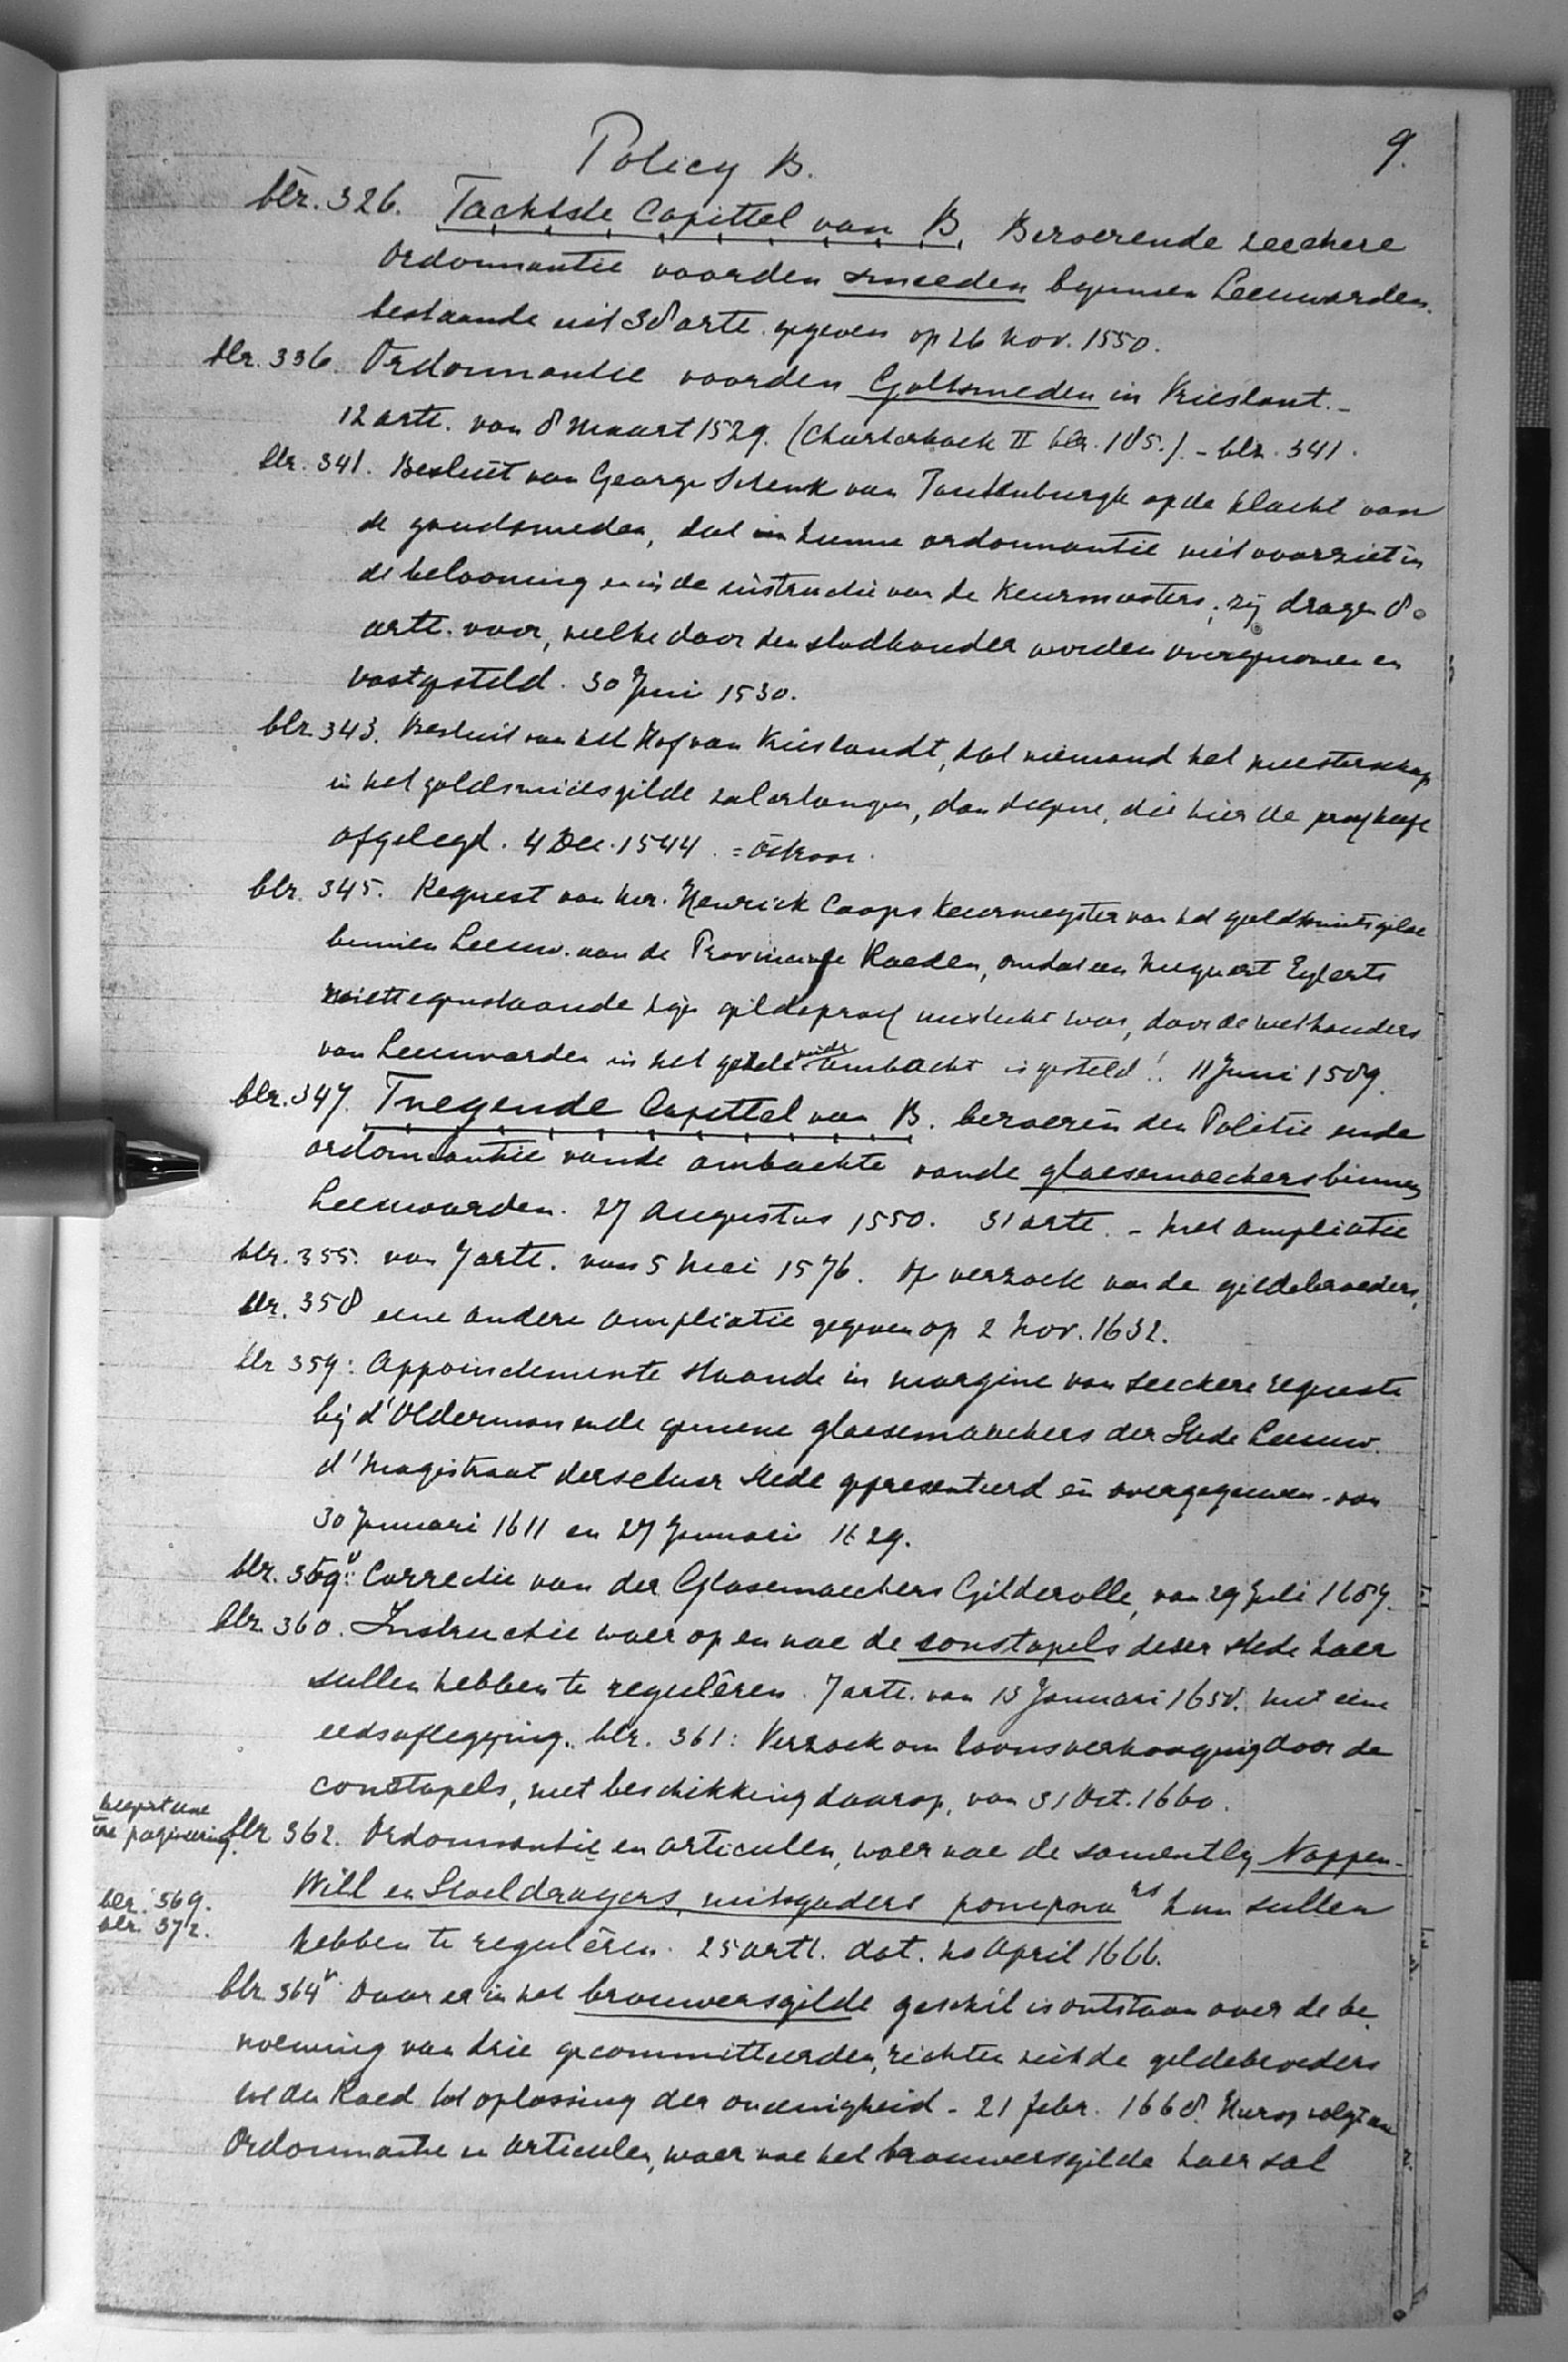 Policy B.
9.
blr. 326. Tachtste Capittel van B. Beroerende zeekere
Ordonnantie voorden smeeden bynnen Leeuwarden.
bestaande uit 38 arte. gegeven op 26 Nov. 1550.
blr. 336. Ordonnantie voorden Goltsmeden in Vrieslant. -
12 arte. van 8 Maart 1529. (Charterboek II blr. 185.). - blr. 341.
blr. 341. Besluit van George Schenk van Toutenburgh op de klacht van
de goudsmeden, dat in hunne ordonnantie niet voorziet in
de belooning en in de instructie van de Keurmeesters; zij dragen 8
arte. voor, welke door den stadhouder worden overgenomen en
vastgesteld. 30 Juni 1530.
blr. 343. Besluit van het Hof van Vrieslandt, dat niemand het meesterschap
in het goldsmidsgilde zal erlangen, dan degene, die hier de proef heeft
afgelegd. 4 Dec. 1544.
blr. 345. Request van Mr. Henrick Coops keurmeyster van het goldsmitsgilde
binnen Leeuw. aan de Provinciale Raeden, omdat een Eylerts
niettegenstaande zijn gildeproef mislukt was, door de wethouders
van Leeuwarden in het gilde ambacht is gesteld! 11 Juni 1589.
blr. 347. Tnegende Capittel van B. beroeren den Politie ende
ordonnantie vande ambachte vande glaesemaeckers binnen
Leeuwarden. 27 Augustus 1550. 31 arte. - met ampliatie
blr. 355. van 7 arte. van 5 Mei 1576. Op verzoek van de gildebroeders,
blr. 358 eene andere ampliatie gegeven op 2 Nov. 1632.
blr 359: Appoinctemente staande in margine van seeckere requeste
bij d'Olderman ende gemene glaesemaeckers der Stede Leeuw.
d'Magistraat derselver stede gepresenteerd en overgegeven. van
30 Januari 1611 en 27 Januari 1629.
blr. 359v: Correctie van der Glasemaeckers Gilderolle, van 29 Juli 1659.
blr. 360. Instructie waer op en nae de constapels deser stede haer
sullen hebben te reguléren. 7 arte. van 15 Januari 1658. met eene
eedsaflegging. blr. 361: Verzoek om loonsverhooging door de
constapels, met beschikking daarop, van 31 Oct. 1660.
begint eene
paginering.
blr 362. Ordonnantie en articulen, waer nae de samentlyj Noppen-
blr. 369.
blr. 372.
Will en Stoeldragers, mitsgaders hun sullen
hebben te reguléren. 25 arte. dat. April 1666.
blr. 364v. Daar er in het brouwersgilde geschil is ontstaan over de be-
noeming van drie gecommitteerden, richten zich de gildebroeders
tot den Raed tot oplossing der oneenigheid - 21 febr. 1668. Hierop volgt een
Ordonnantie en Articulen, waer nae het brouwersgilde haer sal